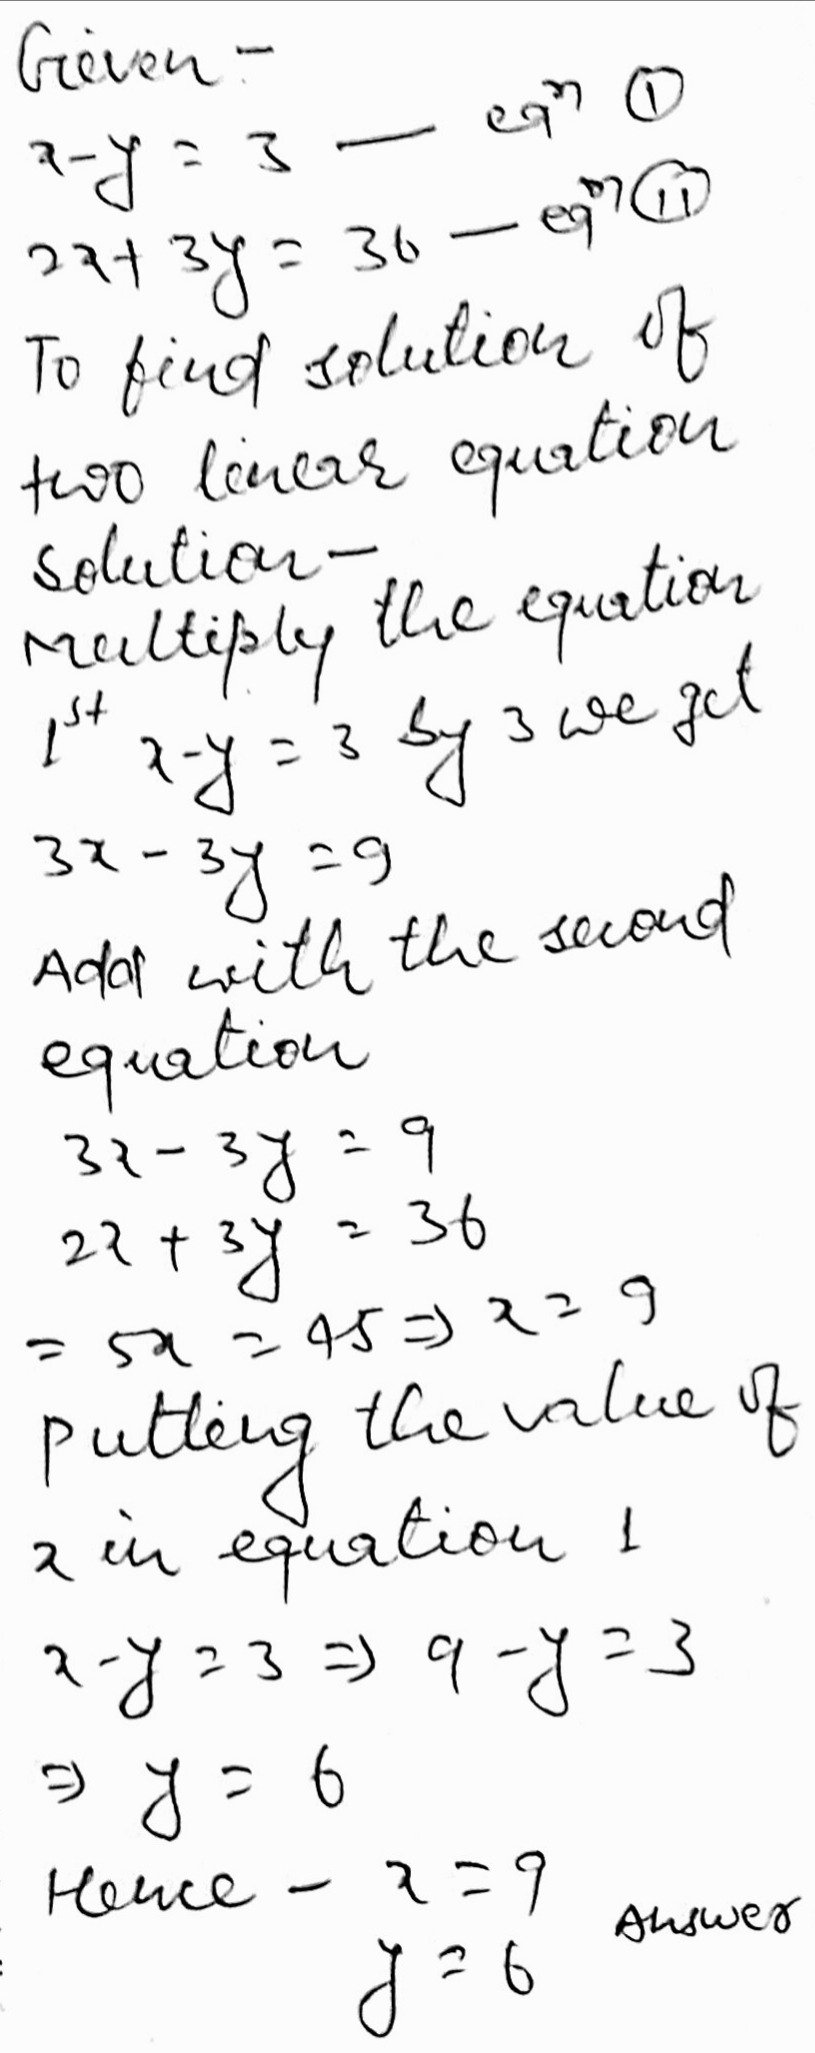 Given -
x-y = 3 — eqⁿ ①
2x+3y = 36 — eqⁿ ⑪
To find solution of
two linear equation
Solution-
Multiply the equation
1st x-y = 3 by 3 we get
3x - 3y = 9
Add with the second
equation
3x - 3y = 9
2x + 3y = 36
= 5x = 45 => x = 9
Putting the value of
x in equation 1
x-y = 3 => 9 - y = 3
=> y = 6
Hence - x = 9
Answer
y = 6